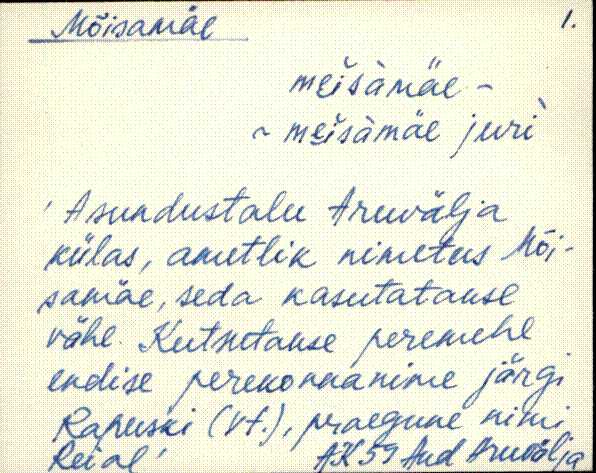 Mõisamäe 1.
mei̬šàmäe ~
~ mei̬šàmäe jurì
' Asundustalu Aruvälja
külas, ametlik nimetus Mõi-
samäe, seda kasutatakse
vähe. Kutsutakse peremehe
endise perekonnanime järgi
Rapuski (vt.), praegune nimi
Reial' AK 59 And Aruvälja